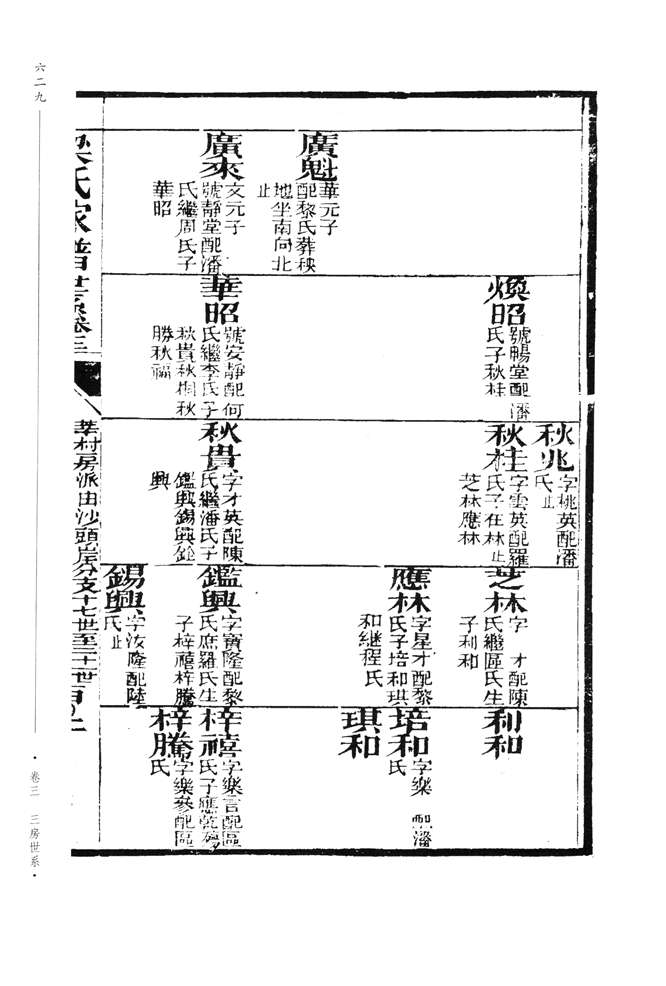 六二九
廣魁
華元子
配黎氏葬秧
地坐南向北
止
廣來
文元子
號靜堂配潘
氏繼周氏子
華昭
煥昭
號暢堂配潘
氏子秋桂
華昭
號安靜配何
氏繼李氏子
秋貴秋桐秋
勝秋福
秋兆
字桃英配潘
氏止
秋桂
字雲英配羅
氏子在林止
芝林應林
秋貴
字才英配陳
氏繼潘氏子
鑑興錫興銓
興
芝林
字 才配陳
氏繼區氏生
子利和
應林
字星才配黎
氏子培和琪
和繼程氏
鑑興
字寶隆配黎
氏庶羅氏生
子梓禧梓騰
錫興
字汝隆配陸
氏止
利和
培和
字樂 配潘
氏
琪和
梓禧
字樂言配區
氏子應乾
梓騰
字樂參配區
氏
梁氏家譜世系卷三
莘村房派由沙頭岸分支十七世至二十一世
卷三 三房世系